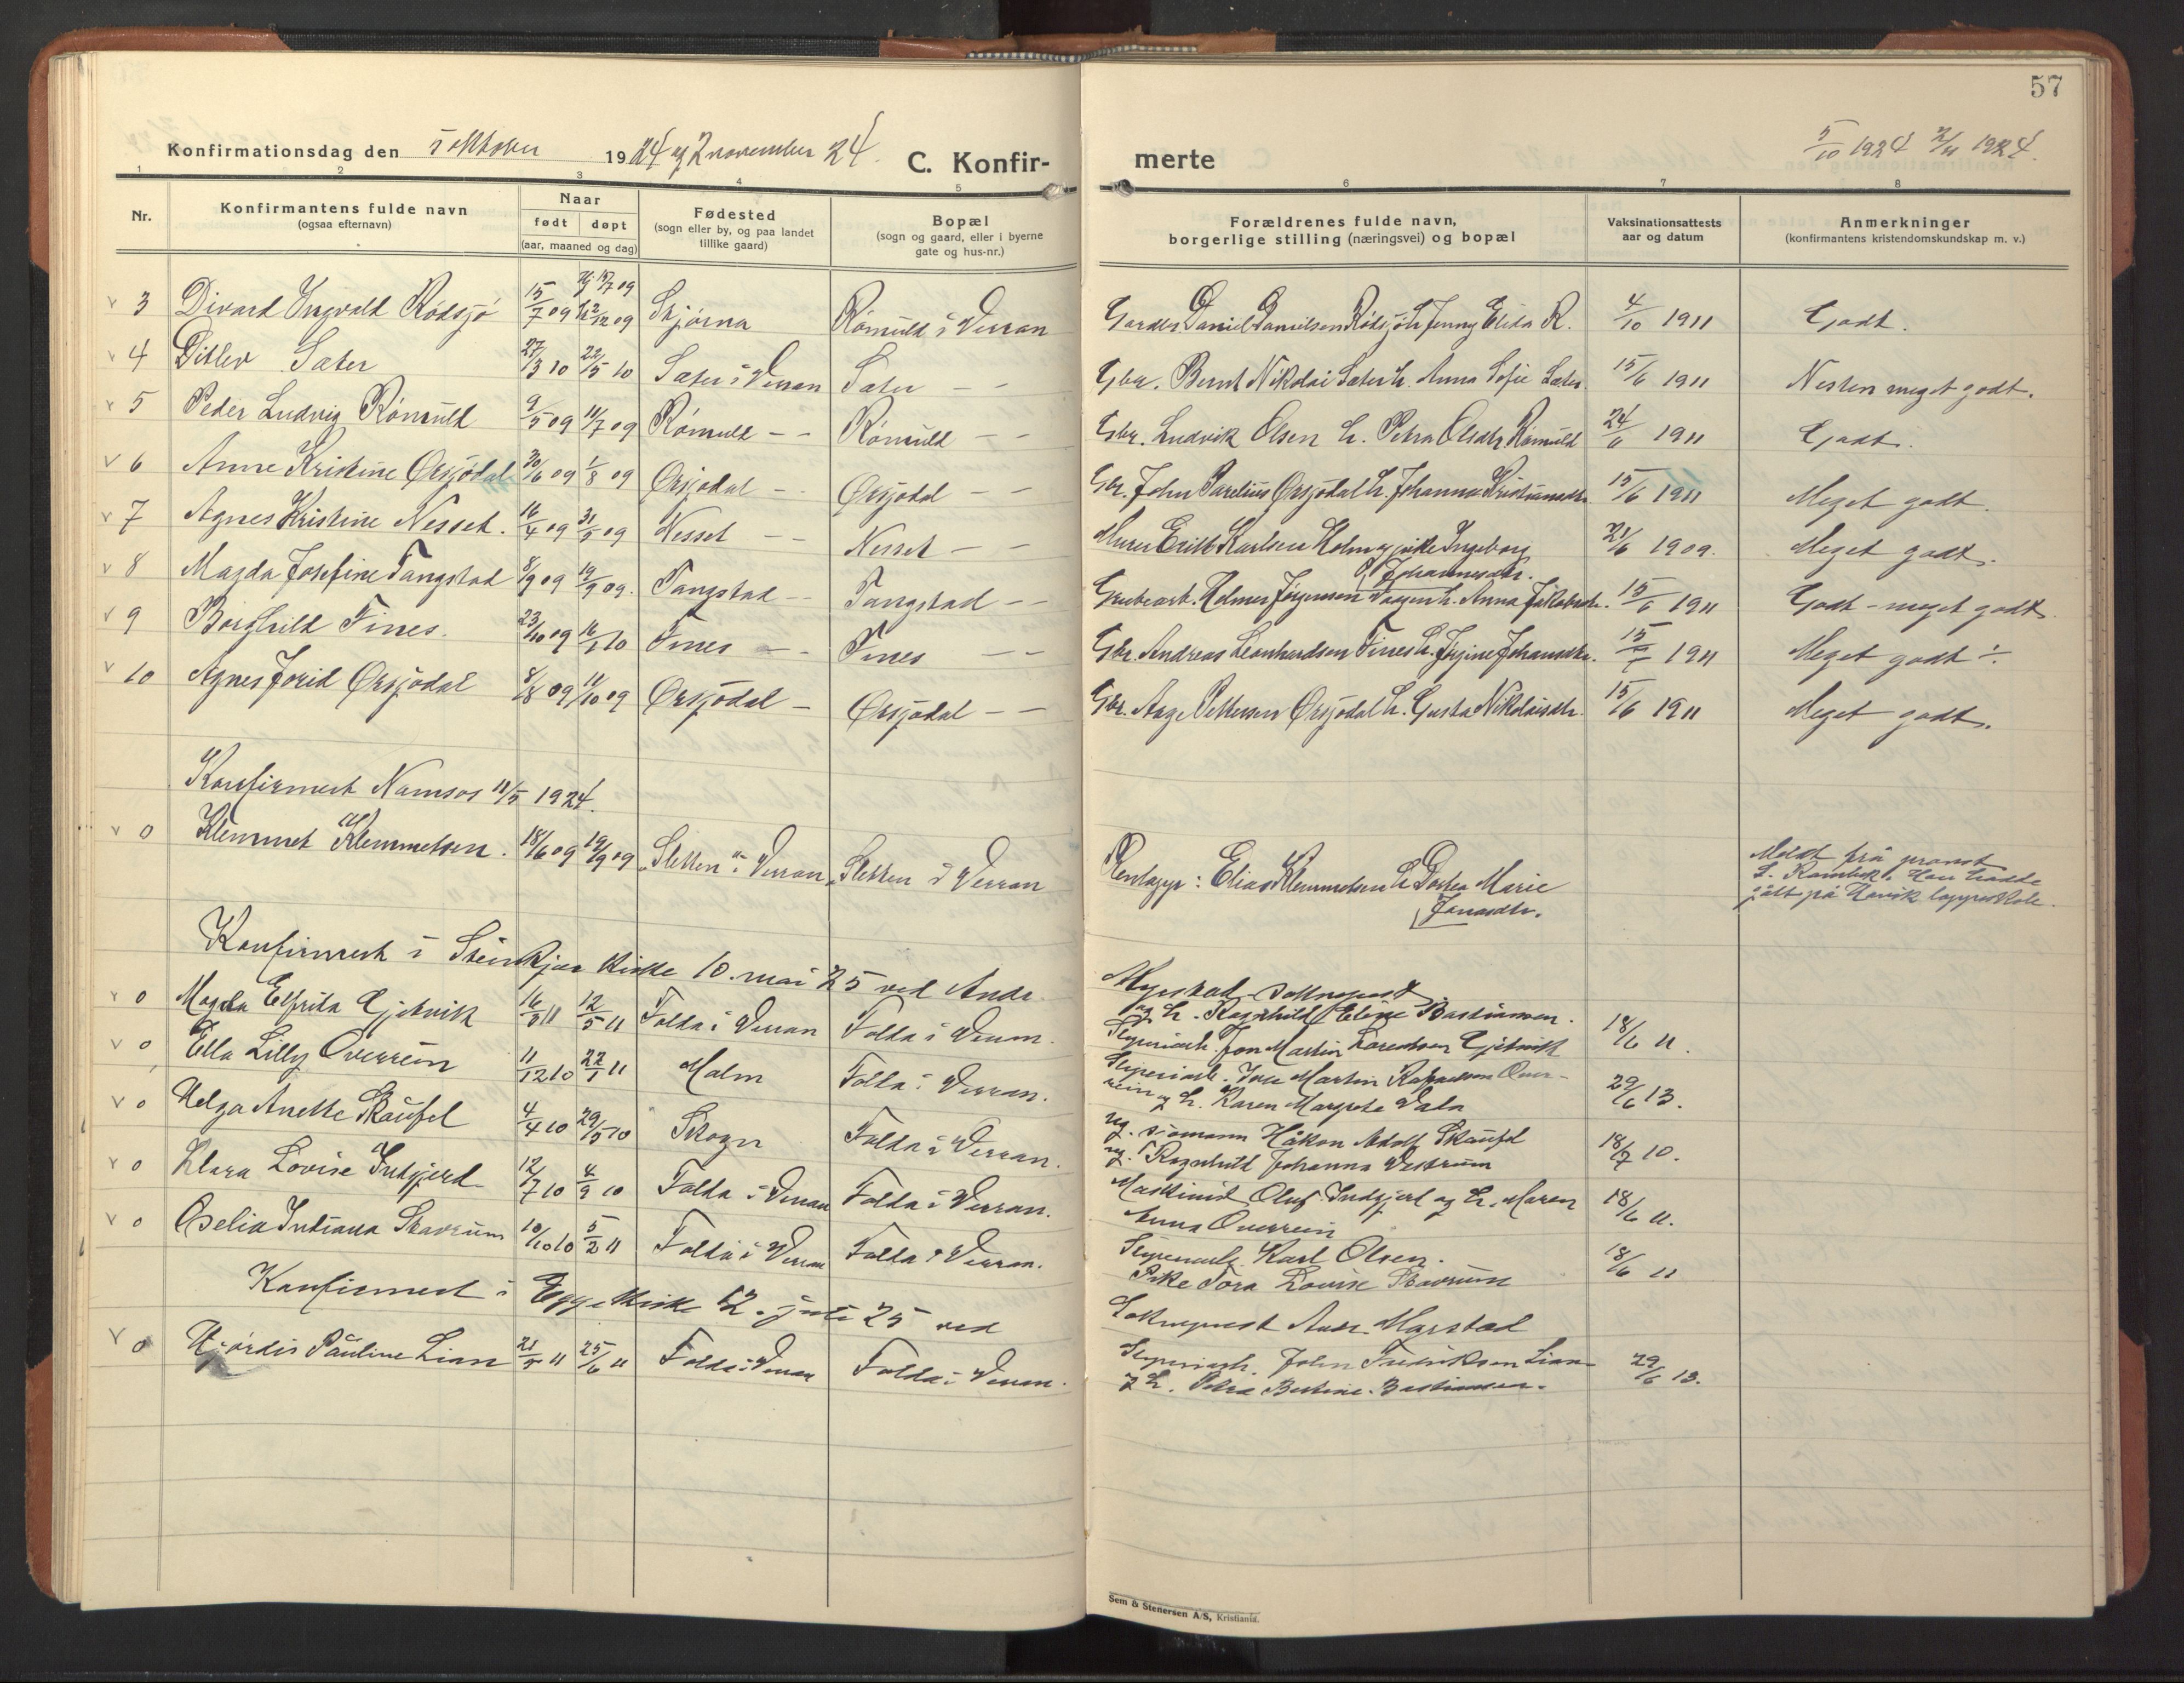 57
Konfirmationsdag den 5 oktober 1924 og 2 november 24. C. Konfir-
merte
5/10 1924 2/11 1924.
1 2 3 4 5 6 7 8
Nr.
Konfirmantens fulde navn
(ogsaa efternavn)
Naar
født døpt
(aar, maaned og dag)
Fødested
(sogn eller by, og paa landet
tillike gaard)
Bopæl
(sogn og gaard, eller i byerne
gate og hus-nr.)
Forældrenes fulde navn,
borgerlige stilling (næringsvei) og bopæl
Vaksinationsattests
aar og datum
Anmerkninger
(konfirmantens kristendomskundskap m. v.)
3 Divard Ingvald Rødsjø 15/7 09 Hj 19/7 09 k 2/12 09 Skjørna Rømuld i Verran Gardbr. Daniel Danielsen Rødsjø h. Jenny Elida R. 4/10 1911 Godt.
4 Ditlev Sæter 27/3 10 22/5 10 Sæter i Verran Sæter - - Gbr. Bernt Nikolai Sæter h. Anna Sofie Sæter 15/6 1911 Nesten meget godt.
5 Peder Ludvig Rømuld 9/5 09 11/7 09 Rømuld - - Rømuld - - Gbr. Ludvik Olsen h. Petra Olsdtr Rømuld 24/6 1911 Godt.
6 Anne Kristine Ørsjødal 30/6 09 1/8 09 Ørsjødal - - Ørsjødal - - Gbr. John Parelius Ørsjødal h. Johanna Kristiansdtr. 15/6 1911 Meget godt.
7 Agnes Kristine Nesset. 16/4 09 31/5 09 Nesset - - Nesset - - Murer Erik Karlsen Holm og pike Ingeborg
Johannesdtr. 21/6 1909. Meget godt.
8 Magda Josefine Tangstad 8/9 09 19/9 09. Tangstad - - Tangstad - - Grubearb. Helmer Jørgensen h. Anna Jakobsdtr. 15/6 1911 Godt - meget godt
9 Borghild Fines. 23/10 09 16/1 10 Fines - - Fines - - Gbr. Andreas Leonhardsen Fines h. Jørgine Johansdtr. 15/6 1911 Meget godt ÷.
10 Agnes Jorid Ørsjødal 8/8 09 11/10 09 Ørsjødal - Ørsjødal - - Gbr. Aage Pettersen Ørsjødal h. Gusta Nikolaisdtr. 15/6 1911 Meget godt.
Konfirmert Namsos 11/5 1924.
0 Klemmet Klemmetsen. 18/6 09 19/9 09 Sletten i Verran Sletten i Verran Elias Klemmetsen h Dortea Marie
Jonasdtr.
Meldt frå prosten
Han hadde
gått på Havik lappeskole.
Konfirmert i Steinkjær kirke 10. mai 25 ved Andr.
Myrstad - sokneprest
0 Magda Elfrida Gjetvik 16/3 11 12/5 11 Folda i Verran Folda i Verran. og h. Ragnhild Eline Bastiansen.
Jon Martin Lorentsen Gjetvik 18/6 11.
0 Ella Lilly Overrein 11/12 10 22/1 11 Malm Folda i Verran. Martin Rafaelsen Over-
rein og h. Karen Margrete Dala 29/6 13.
0 Helga Anette Skaufel 4/4 10 29/5 10 Skogn Folda i Verran. Ug. sjømann Håkon Adolf Skaufel
ug. Ragnhild Johanna Vestrum 18/7 10.
0 Klara Lovise Indgjerd 12/7 10 4/9 10 Folda i Verran Folda i Verran. Maskinist Oluf Indgjerd og h. Maren
Anna Overrein 18/6 11.
0 Oselia Indiana Skavrum 10/10 10 5/2 11 Folda i Verran Folda i Verran. Karl Olsen.
Pike Tora Lovise Skavrum 18/6 11
Konfirmert i Egge kirke 12. juli 25 ved
Sokneprest Andr. Myrstad
0 Hjørdis Pauline Lian 21/5 11 25/6 11 Folda i Verran Folda i Verran. John Fredriksen Lian
og h. Petra Bastiansen. 29/6 13.
Sem & Stenersen A/S, Kristiania.